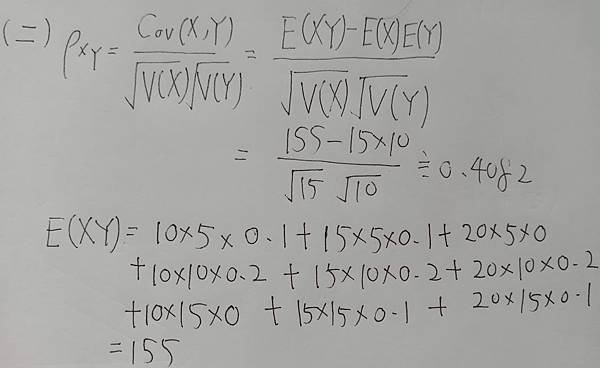 (二) ρXY = Cov(X,Y) / √V(X)√V(Y) = E(XY)-E(X)E(Y) / √V(X)√V(Y)
= 155-15×10 / √15 √10 ≒ 0.4082
E(XY) = 10×5×0.1 + 15×5×0.1 + 20×5×0
+10×10×0.2 + 15×10×0.2 + 20×10×0.2
+10×15×0 + 15×15×0.1 + 20×15×0.1
=155